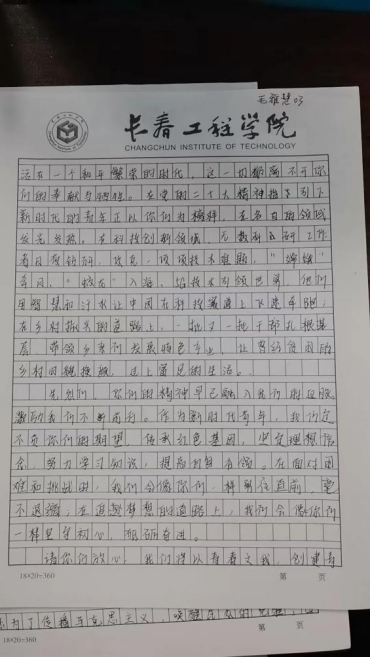 毛雅慧03
长春工程学院
CHANGCHUN INSTITUTE OF TECHNOLOGY
活在一个和平繁荣的时代，这一切都离不开你
们的奉献与牺牲。在党的二十大精神指引下
新时代的青年正以你们为榜样，在各自的领域
发光发热。在科技创新领域，无数科研工作
者日夜钻研，攻克一项项技术难题，"嫦娥"
奔月，"蛟龙"入海，
用智慧和汗水让中国在科技赛道上飞速奔跑
在乡村振兴的道路上，一批又一批干部扎根基
层，带领乡亲们发展特色产业，让曾经贫困的
乡村旧貌换颜，过上富足的生活。
先烈们，你们的精神早已融入我们的血脉
激励我们不断前行。作为新时代青年，我们定
不负你们的期望，传承红色基因，坚定理想信
念，努力学习知识，提高自身本领。在面对困
难和挑战时，我们会像你们一样勇往直前，毫
不退缩，在追逐梦想的道路上，我们会像你们
一样坚守初心，砥砺奋进。
请你们放心，我们将以青春之我，创建青
18×20=360
第 页
为了传播马克思主义，唤醒
18×20=360
第 页